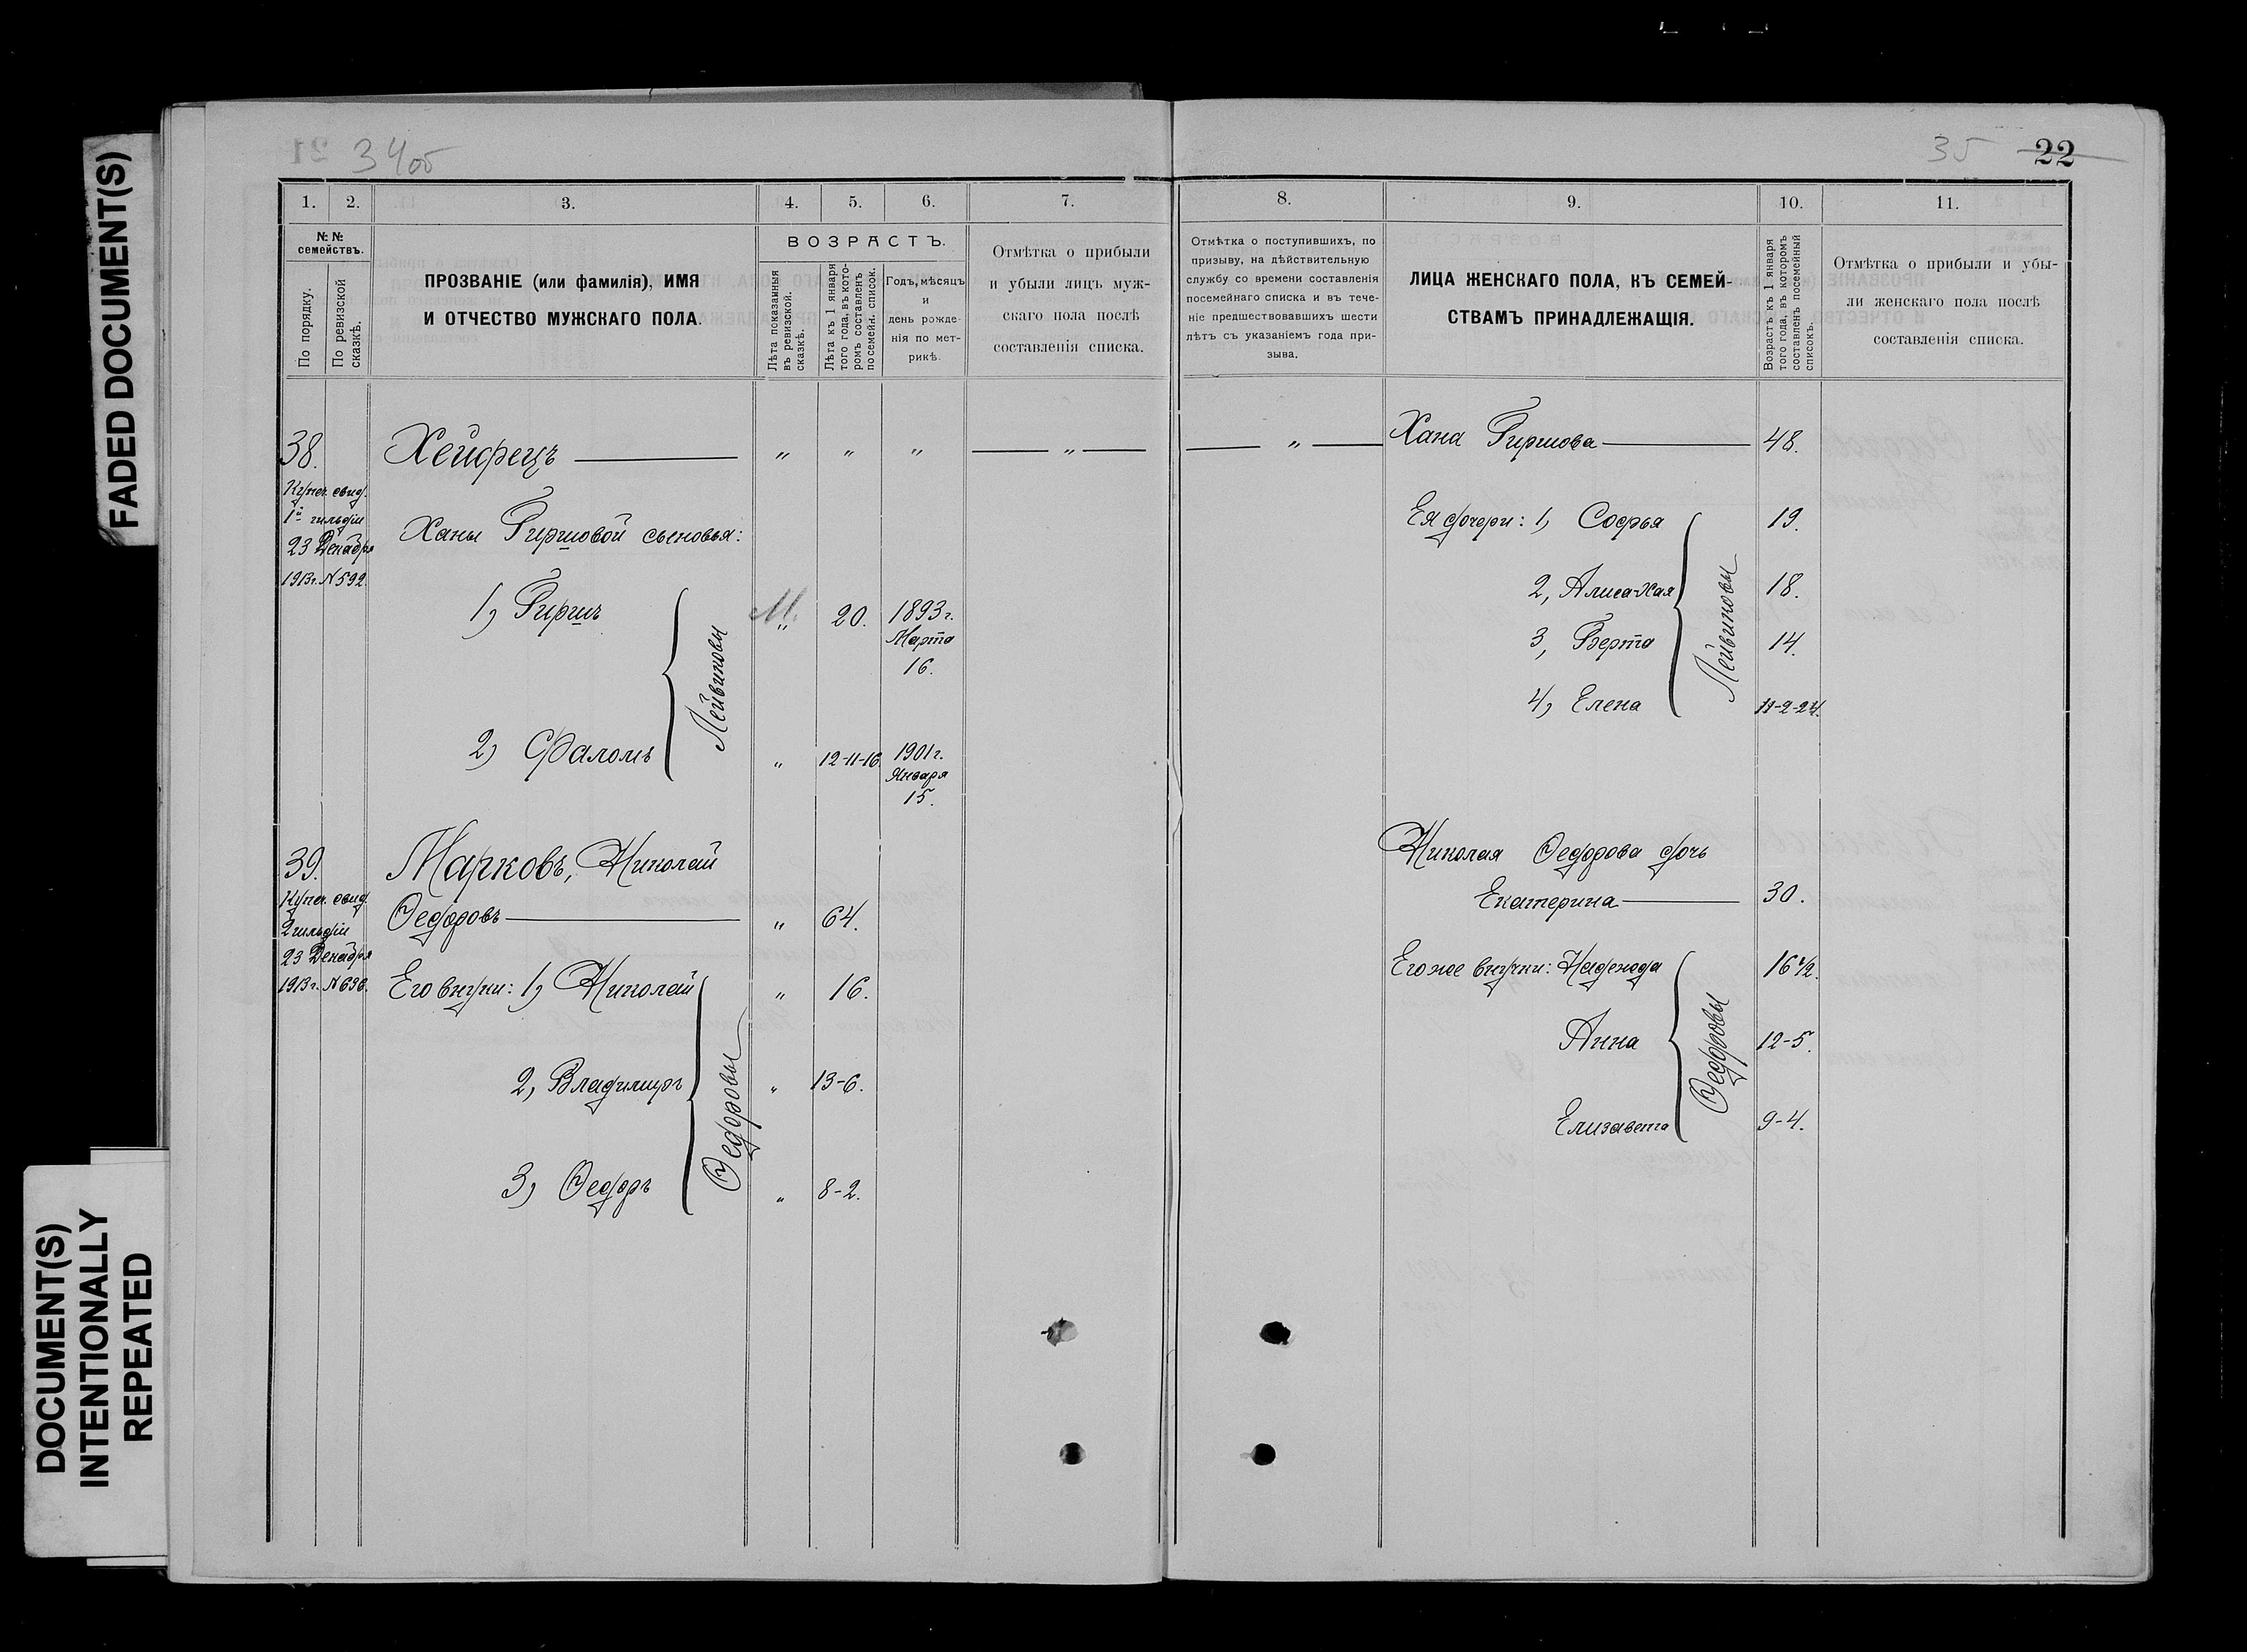 FADED DOCUMENT(S)
DOCUMENT(S)
INTENTIONALLY
REPEATED
34об
1. 2. 3. 4. 5. 6. 7.
№№
семействъ.
По порядку.
По ревизской
сказкѣ.
ПРОЗВАНІЕ (или фамилія), ИМЯ
И ОТЧЕСТВО МУЖСКАГО ПОЛА.
ВОЗРАСТЪ.
Лѣта показанныя
въ ревизской.
сказкѣ.
Лѣта къ 1 января
того года, въ кото-
ромъ составленъ
посемейн. список.
Годъ, мѣсяцъ
и
день рожде-
нія по мет-
рикѣ.
Отмѣтка о прибыли
и убыли лицъ муж-
скаго пола послѣ
составленія списка.
38. Хейфецъ „ „ „ „
Купеч. свид.
1й гильдіи
23 Декабря
1913г. № 592.
Ханы Гиршовой сыновья:
1) Гиршъ М. „ 20. 1893г.
Марта
16.
Лейвиковы
2) Фаломъ „ 12-11-16. 1901г.
Января
15.
39. Марковъ, Николай
Купеч. свид.
2 гильдіи
23 Декабря
1913г. № 698.
Ѳедоровъ „ 64.
Его внуки: 1) Николай „ 16.
2, Владиміръ „ 13-6.
Ѳедоровы
3) Ѳедоръ „ 8-2.
35 22
8. 9. 10. 11.
Отмѣтка о поступившихъ, по
призыву, на дѣйствительную
службу со времени составленія
посемейнаго списка и въ тече-
ніе предшествовавшихъ шести
лѣтъ съ указаніемъ года при-
зыва.
ЛИЦА ЖЕНСКАГО ПОЛА, КЪ СЕМЕЙ-
СТВАМЪ ПРИНАДЛЕЖАЩІЯ.
Возрастъ къ 1 января
того года, въ которомъ
составленъ посемейный
списокъ.
Отмѣтка о прибыли и убы-
ли женскаго пола послѣ
составленія списка.
„ Хана Гиршова 48.
Ея дочери: 1, Софья 19.
2, Алиса-Хая 18.
3, Берта 14.
4, Елена 11-2-24.
Лейвиковы
Николая Ѳедорова дочь
Екатерина 30.
Его же внучки: Надежда 16 1/2.
Анна 12-5.
Елизавета 9-4.
Ѳедоровы